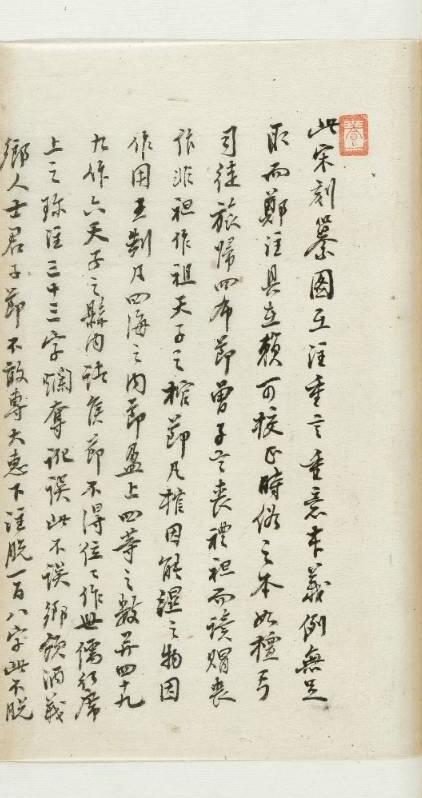 此宋刻纂圖互注重言重意本義例無足
取而鄭注具在賴可校正時俗之本如檀弓
司徒旅歸四布節曾子言喪禮祖而讀賵喪
作非祖作祖天子之棺節凡棺因能濕之物因
作用王制凡四海之內節盈上四等之數并四十九
九作六天子之縣內諸侯節不得位位作世儒行席
上之珍注三十三字爛奪訛誤此不誤鄉飲酒義
鄉人士君子節不敢專大惠下注脫一百八字此不脫